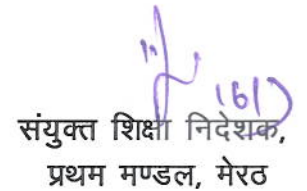 संयुक्त शिक्षा निदेशक,
प्रथम मण्डल, मेरठ